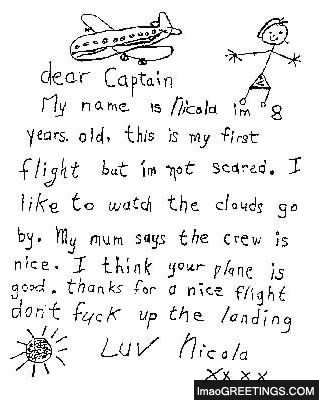 dear Captain
My name is Nicola im 8
years old, this is my first
flight but im not scared. I
like to watch the clouds go
by. My mum says the crew is
nice. I think your plane is
good. thanks for a nice flight
don't fuck up the landing
LUV Nicola
xxxx
lmaoGREETINGS.COM